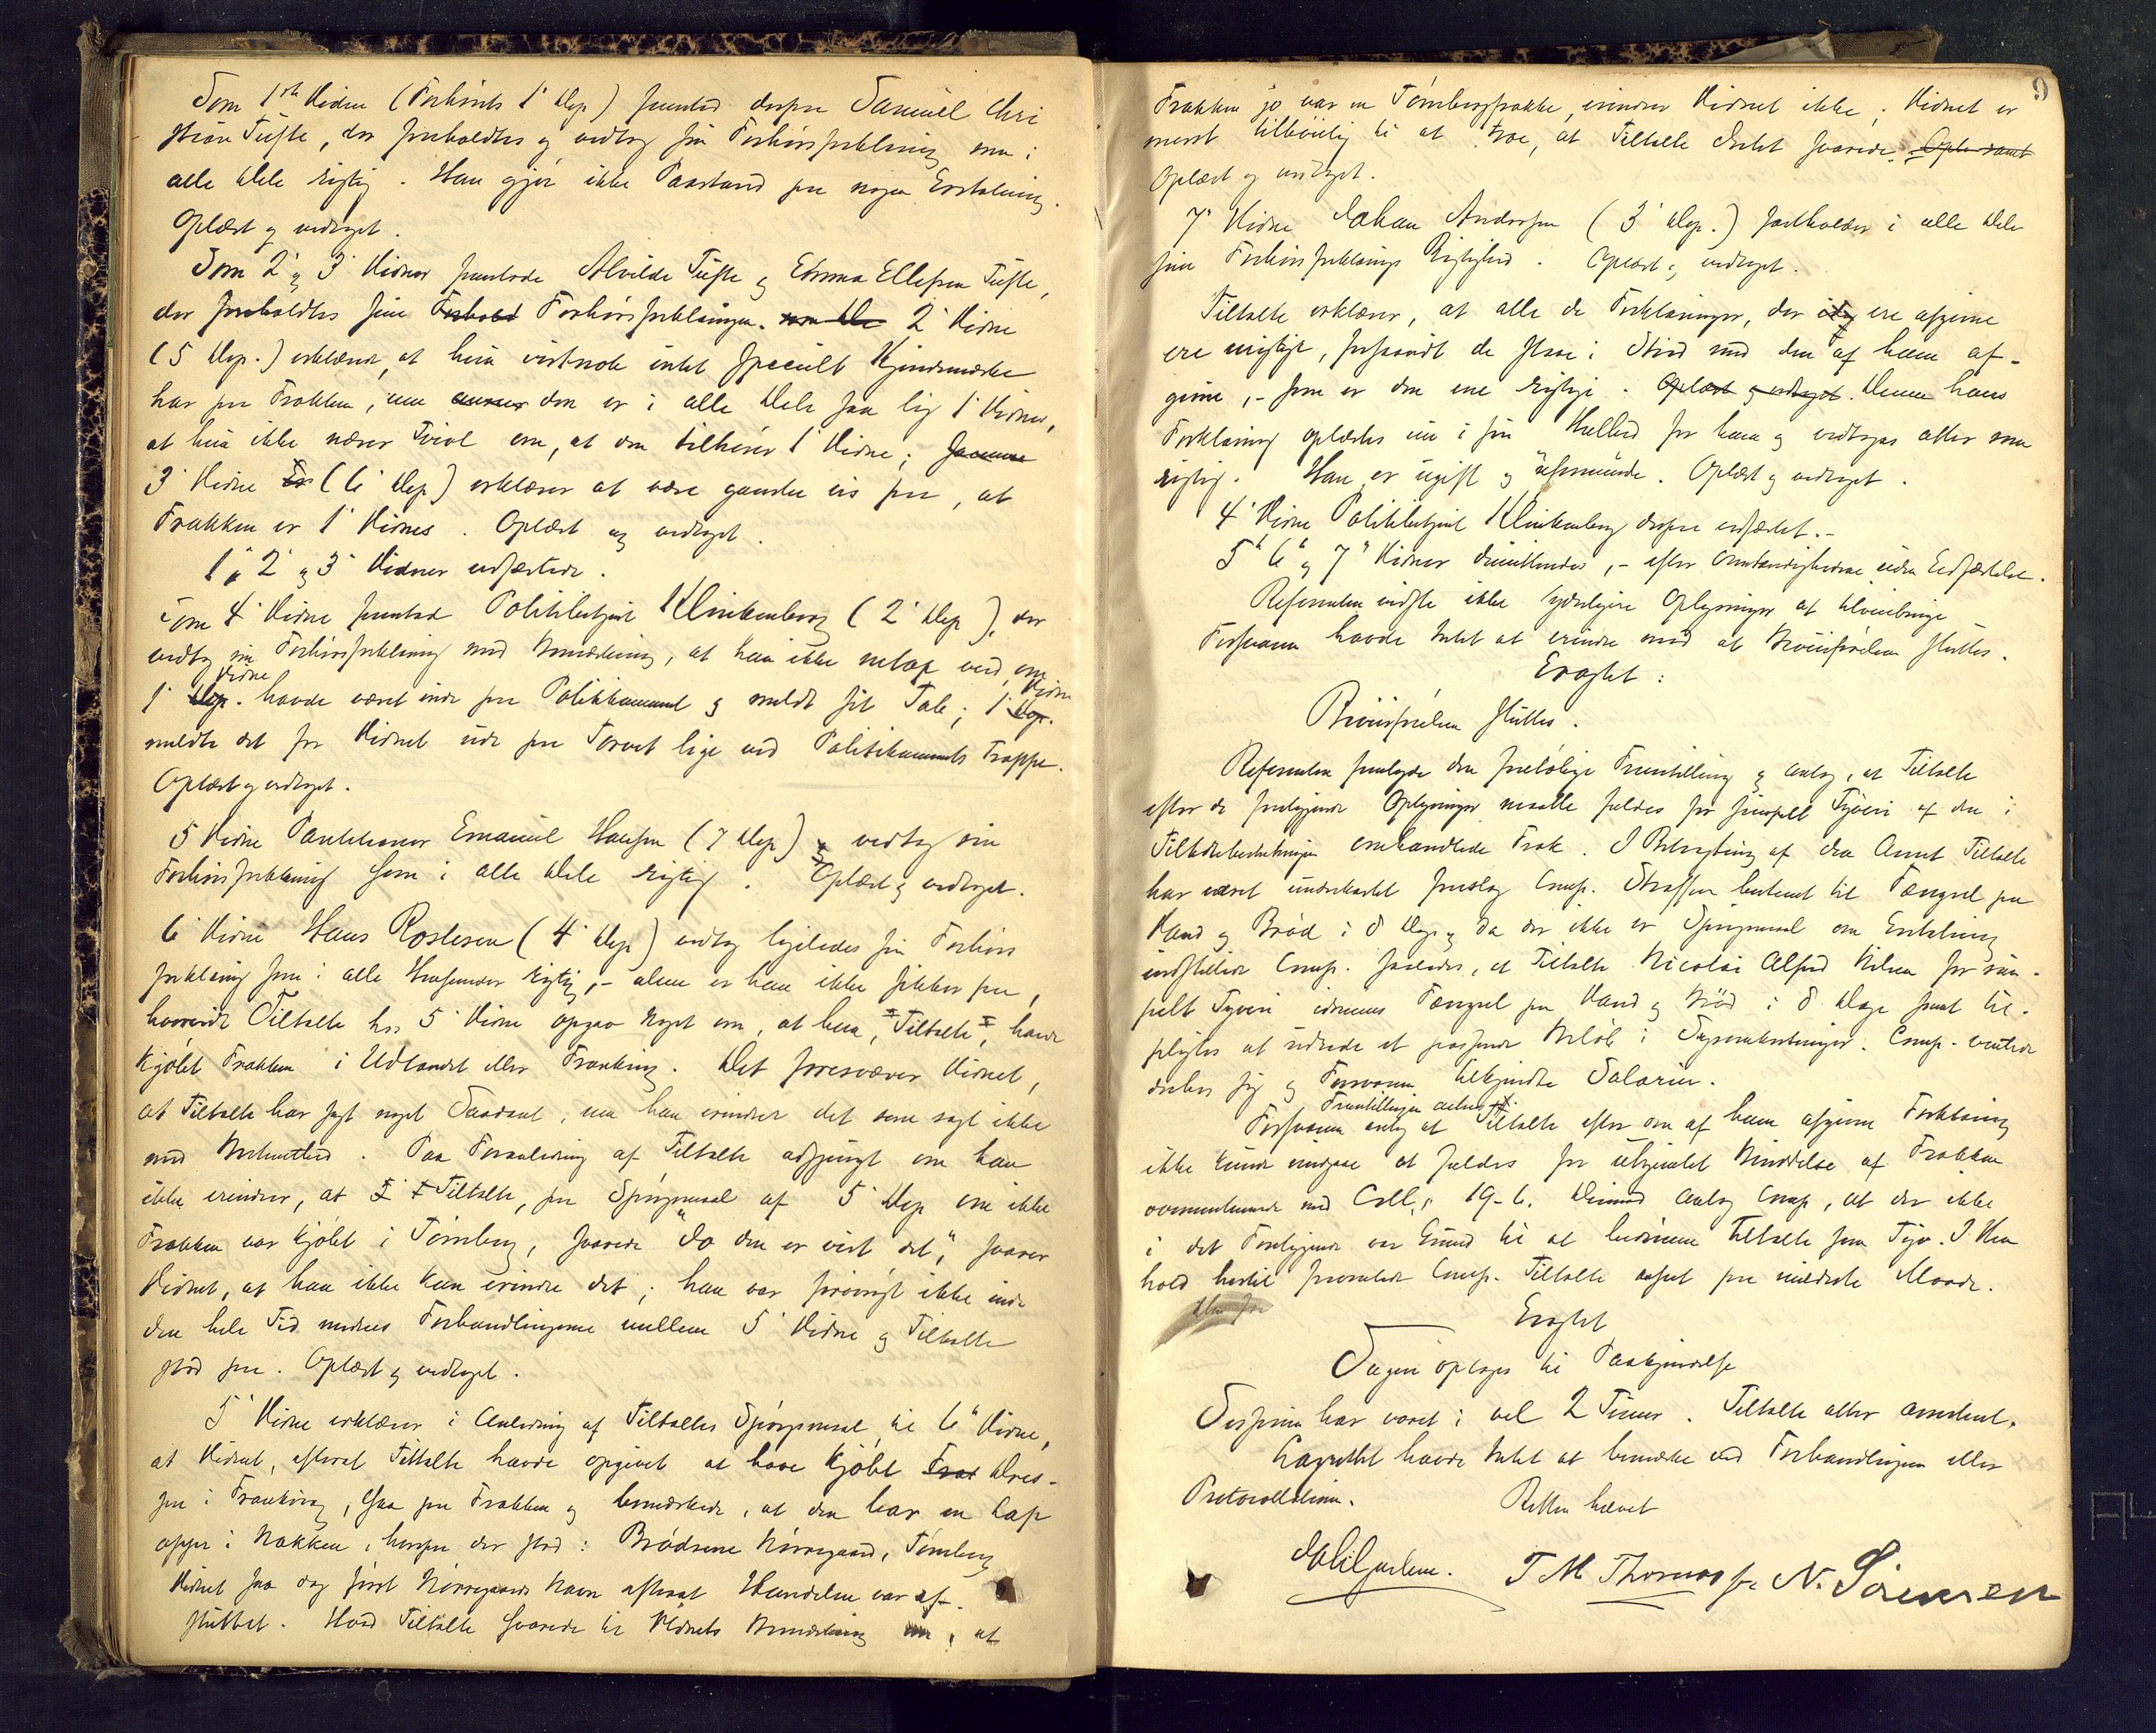 Som 1ste Vidne (Forhørets 1' Dep) fremstod derpaa Samuel Chri
stian Tufte, der foreholdtes og vedtog sin Forhørsforklaring som i
alle Dele rigtig. Han gjør ikke Paastand paa nogen Erstatning.
Oplæst og vedtaget.
Som 2' og 3' Vidner fremstode Alvilde Tufte og Emma Ellefsen Tufte,
der foreholdtes sine Forhold Forhørsforklaringer. som De 2' Vidne
(5 Dep.) erklærede, at hun vistnok intet specielt Kjendemærke
har paa Frakken, men den er i alle Dele saa lig 1' Vidnes,
at hun ikke nærer Tvivl om, at den tilhører 1' Vidne; Samme
3' Vidne (6' Dep) erklærer at være ganske vis paa, at
Frakken er 1' Vidnes. Oplæst og vedtaget.
1', 2' og 3' Vidner edfæstede.
Som 4' Vidne fremstod Politibetjent Klinkenberg (2' Dep), der
vedtog sin Forhørsforklaring med Bemærkning, at han ikke netop ved, om
Vidne Vidne
1' Dep. havde været inde paa Politikammeret og meldt sit Tab; 1' Dep.
meldte det for Vidnet ude paa Torvet lige ved Politikammerets Trappe.
Oplæst og vedtaget.
5 Vidne Pantelaaner Emanuel Hansen (7 Dep) vedtog sin
Forhørsforklaring som i alle Dele rigtig. Oplæst og vedtaget.
6' Vidne Hans Roslesen (4' Dep) vedtog ligeledes sin Forhørs
forklaring som i alle Henseender rigtig, - alene er han ikke sikker paa,
hvorvidt Tiltalte hos 5' Vidne opgav noget om, at han, Tiltalte, havde
kjøbt Frakken i Udlandet eller Frankrig. Det foresvæver Vidnet,
at Tiltalte har sagt noget Saadant, men han erindrer det som sagt ikke
med Bestemthed. Paa Foranledning af Tiltalte adspurgt om han
ikke erindrer, at Tiltalte, paa Spørgsmaal af 5' Dep om ikke
Frakken var kjøbt i Tønsberg, svarede "Jo den er vist det", svarer
Vidnet, at han ikke kan erindre det; han var forøvrigt ikke inde
den hele Tid medens Forhandlingerne mellem 5' Vidne og Tiltalte
stod paa. Oplæst og vedtaget.
5' Vidne erklærer i Anledning af Tiltaltes Spørgsmaal til 6" Vidne,
at Vidnet, efterat Tiltalte havde opgivet at have kjøbt Frak Dres-
sen i Frankrig, saa paa Frakken og bemærkede, at den har en Lap
oppe i Nakken, hvorpaa der stod: Brødrene Nørregaard, Tønsberg
Vidnet saa dog først Nørregaards Navn efterat Handelen var af-
sluttet. Hvad Tiltalte svarede til Vidnets Bemærkning om, at
9
Frakken jo var en Tønsbergfrakke, erindrer Vidnet ikke; Vidnet er
mest tilbøielig til at troe, at Tiltalte Intet svarede. Oplæst samt
Oplæst og vedtaget.
7' Vidne Johan Andersen (3' Dep.) fastholder i alle Dele
sin Forhørsforklarings Rigtighed. Oplæst og vedtaget.
Tiltalte erklærer, at alle de Forklaringer, der idag ere afgivne
ere urigtige, forsaavidt de staa i Strid med den af ham af-
givne, - som er den ene rigtige. Oplæst og vedtaget. Denne hans
Forklaring oplæstes nu i sin Helhed for ham og vedtoges atter som
rigtig. Han er ugift og uformuende. Oplæst og vedtaget.
4' Vidne Politibetjent Klinkenberg derpaa edfæstet. -
5" 6" og 7" Vidner dimitteredes, - efter Omstændighederne uden Edfæstelse.
Referenten vidste ikke yderligere Oplysninger at tilveiebringe
Forsvaren havde Intet at erindre mod at Bevisførelsen sluttes.
Eragtet:
Bevisførelsen sluttes.
Referenten fremlagde den foreløbige Fremstilling og antog, at Tiltalte
efter de foreliggende Oplysninger maatte fældes for simpelt Tyveri af den i
Tiltalebeslutningen omhandlede Frak. I Betragtning af den Arrest Tiltalte
har været underkastet foreslog Comp. Straffen bestemt til Fængsel paa
Vand og Brød i 8 Dage og da der ikke er Spørgsmaal om Erstatning
indstillede Comp. saaledes, at Tiltalte Nicolai Alfred Nilsen for sim-
pelt Tyveri idømmes Fængsel paa Vand og Brød i 8 Dage samt til-
pligtes at udrede et passende Beløb i Sagsomkostninger. Comp. ventede
derhos sig og Forsvaren tilkjendte Salarier.
Fremstillingen
Forsvaren antog at Tiltalte efter den af ham afgivne Forklaring
ikke kunde undgaa at fældes for ubeføiet Besiddelse af Frakken
overensstemmende med Crll. 19-6. Derimod antog Comp, at der ikke
i det Foreliggende var Grund til at bedømme Tiltalte som Tyv. I Hen
hold hertil Comp. Tiltalte anset paa mildeste Maade.
Eragtet
Sagen optages til Paakjendelse
Sessionen har varet i vel 2 Timer. Tiltalte atter arresteret.
Lagretten havde Intet at bemærke ved Forhandlingen eller
Protocollationen. Retten hævet
T M Thomassen N. Sørensen